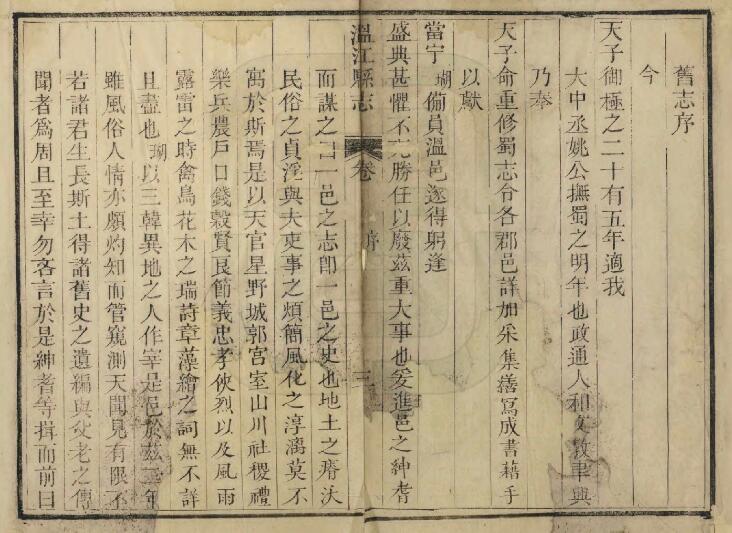 舊志序
今
天子御極之二十有五年適我
大中丞姚公撫蜀之明年也政通人和文教聿興
乃奉
天子命重修蜀志令各郡邑詳加采集繕寫成書藉手
以献
當宁瑚備員溫邑遂得躬逢
盛典甚懼不克勝任以廢茲重大事也爰進邑之紳耆
溫江縣志 卷 序 三
而謀之曰一邑之志卽一邑之史也地土之瘠沃
民俗之貞淫與夫吏事之煩簡風化之淳漓莫不
寓於斯焉是以天官星野城郭宮室山川社稷禮
樂兵農戸口錢穀賢良節義忠孝俠烈以及風雨
露雷之時禽鳥花木之瑞詩章藻繪之詞無不詳
且盡也瑚以三韓異地之人作宰是邑於茲三年
雖風俗人情亦頗灼知而管窺測天聞見有限不
若諸君生長斯土得諸舊史之遺編與父老之傳
聞者爲周且至幸勿吝言於是紳耆等揖而前曰